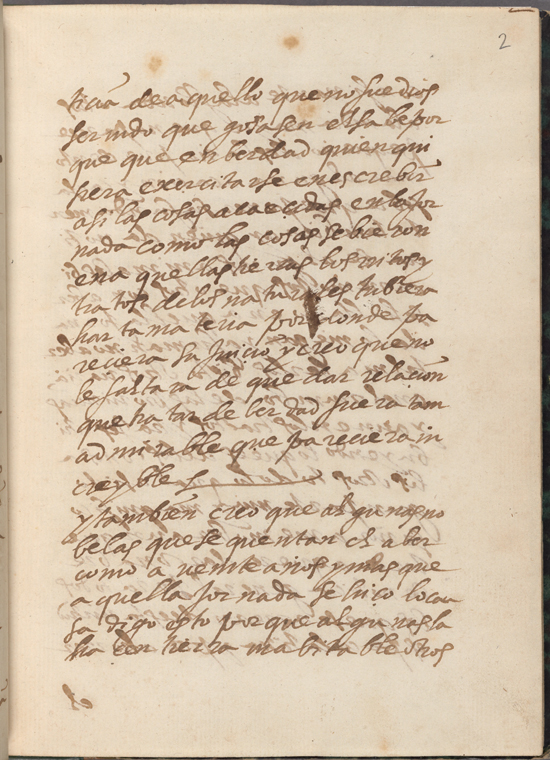 2
ticia de aquello que no fue dios
seruido que gosasen el sabe por
que que en berdad quien qui
siera exercitarse en escrebir
asi las cosas acaecidas en la jor
nada como las cosas se bieron
en aquellas tierras los ritos y
tratos de los naturales tubiera
harta materia por donde pa
reciera su juicio y creo que no
le faltara de que dar relacion
que tratar de berdad fuera tam
admirable que pareciera in
creyble
y tambien creo que algunas no
belas que se quentan el aber
como a veinte años y mas que
aquella jornada se hiço lo cau
sa digo esto porque algunas la
hacen tierra inabitable otros